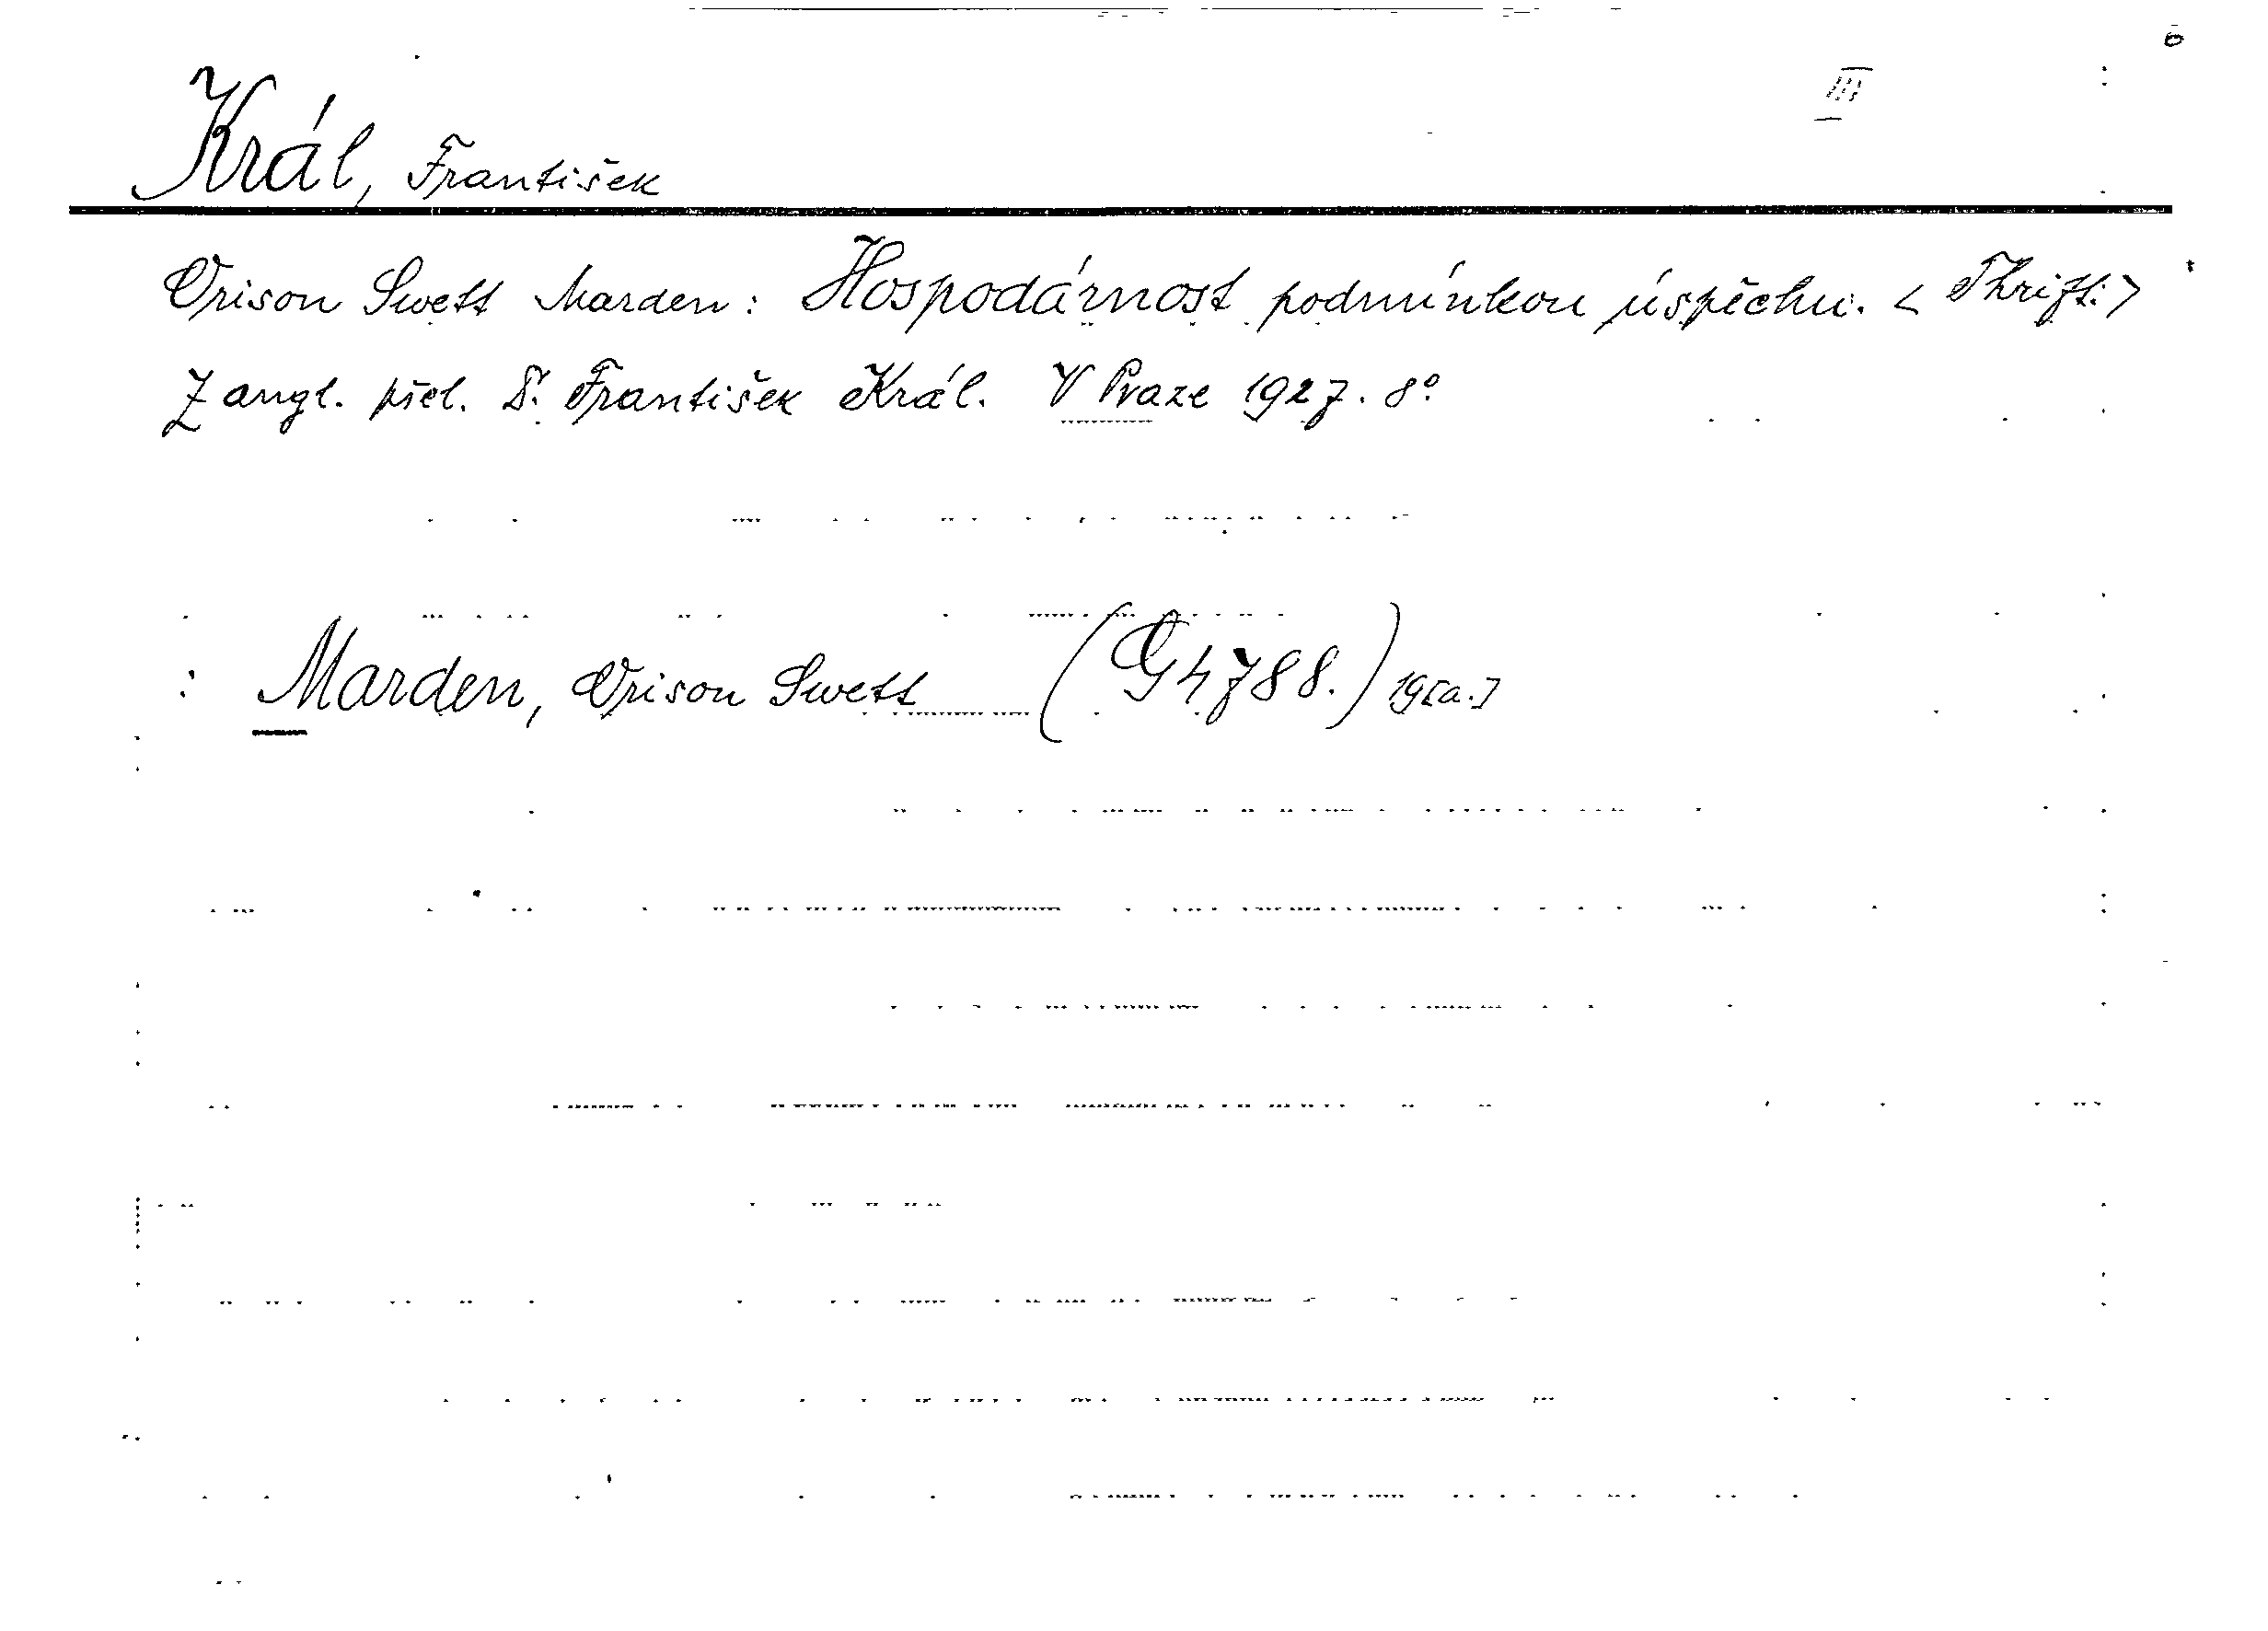 III
Král, František
Orison Swett Marden: Hospodárnost podmínkou úspěchu. < Thrift. >
Z angl. přel. Dr. František Král. V Praze 1927. 8°
: Marden, Orison Swett (G 4788.) 19[a.]